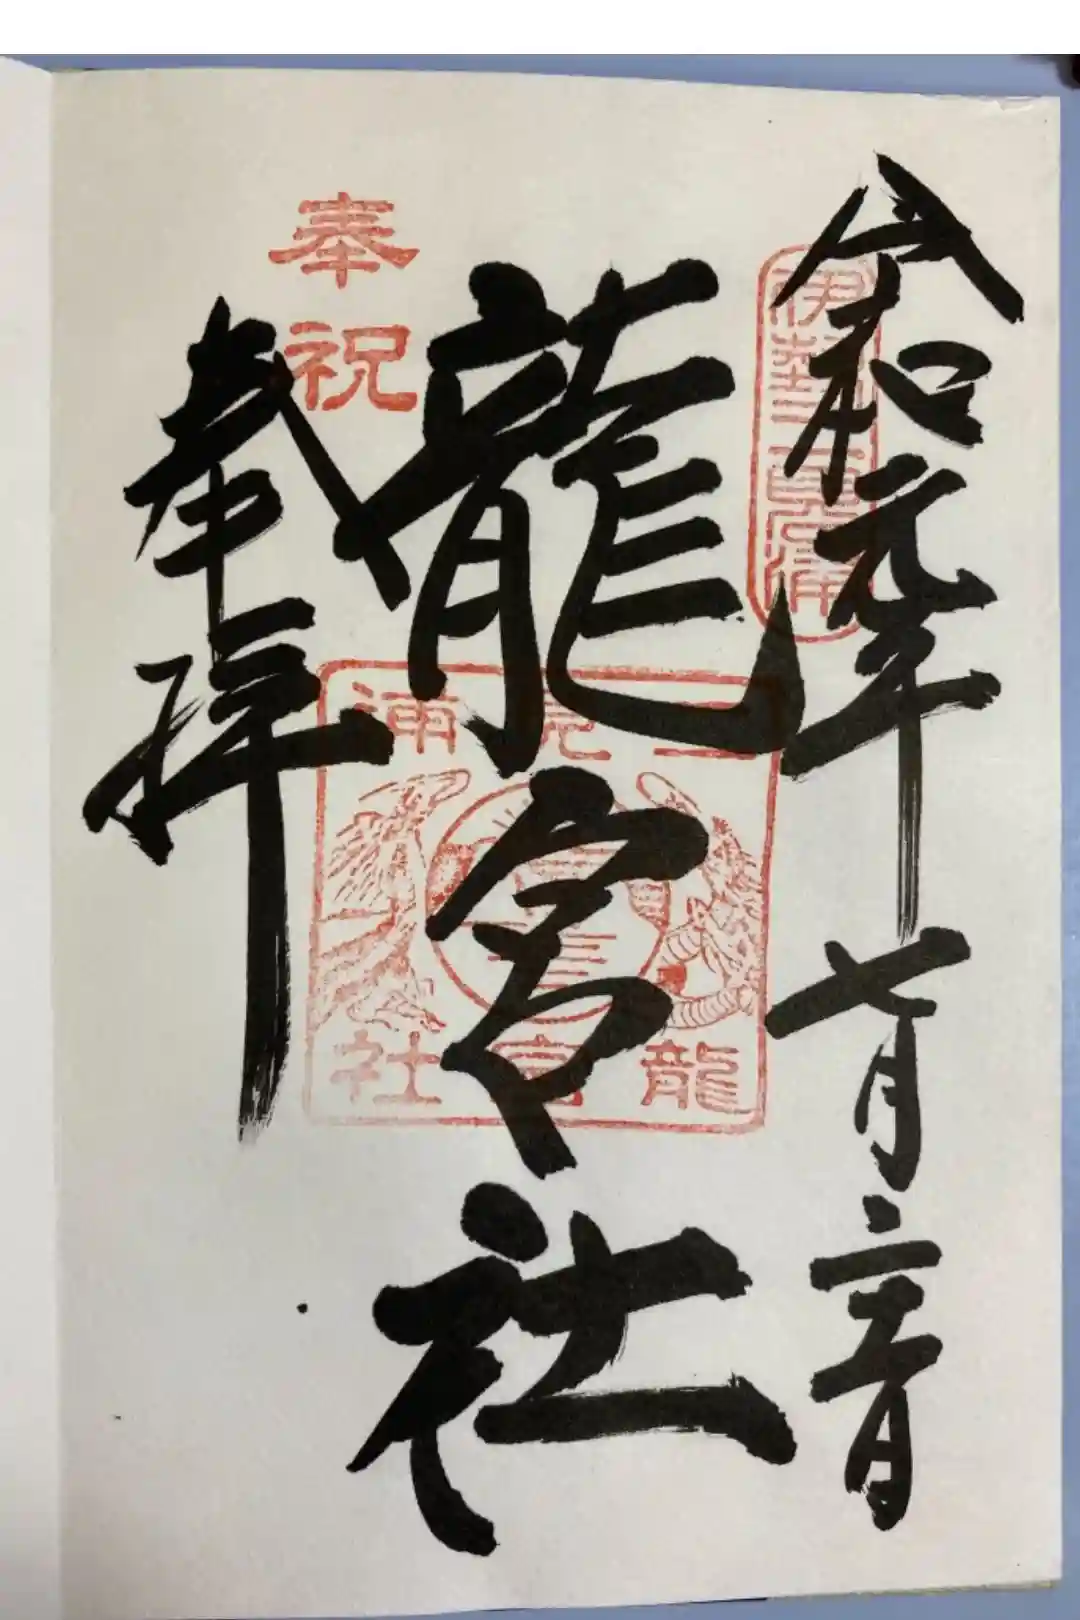 伊勢二見浦
令和元年七月二十日
龍宮社
二見浦
龍宮社
奉祝
奉拝